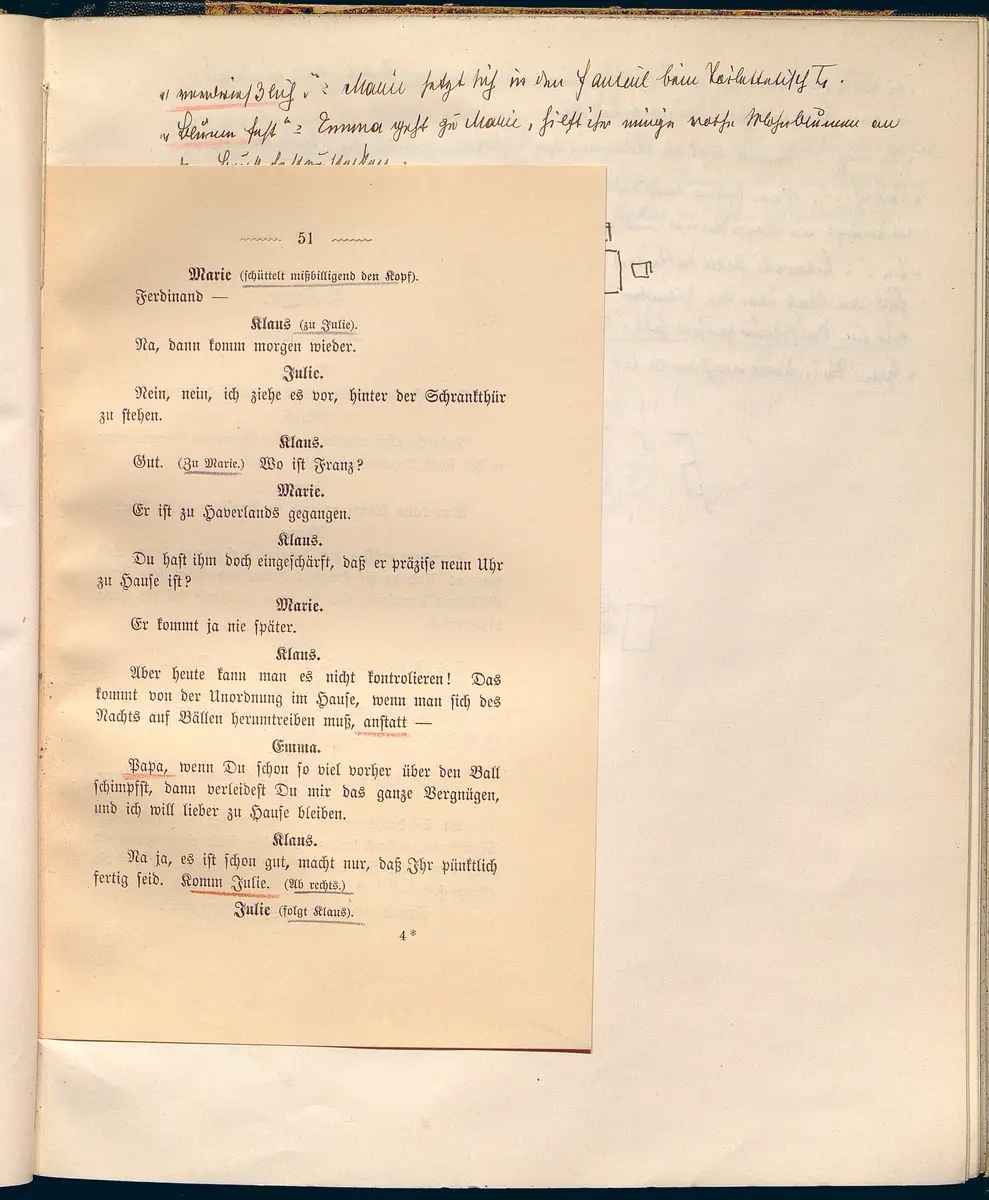 „verdrießlich“: Marie setzt sich in den Fauteuil beim Toilettetisch
„Blumen fest“: Emma geht zu Marie, hilft ihr einige rothe Mohnblumen an
51
Marie (schüttelt mißbilligend den Kopf).
Ferdinand —
Klaus (zu Julie).
Na, dann komm morgen wieder.
Julie.
Nein, nein, ich ziehe es vor, hinter der Schrankthür
zu stehen.
Klaus.
Gut. (Zu Marie.) Wo ist Franz?
Marie.
Er ist zu Haverlands gegangen.
Klaus.
Du hast ihm doch eingeschärft, daß er präzise neun Uhr
zu Hause ist?
Marie.
Er kommt ja nie später.
Klaus.
Aber heute kann man es nicht kontrolieren! Das
kommt von der Unordnung im Hause, wenn man sich des
Nachts auf Bällen herumtreiben muß, anstatt —
Emma.
Papa, wenn Du schon so viel vorher über den Ball
schimpfst, dann verleidest Du mir das ganze Vergnügen,
und ich will lieber zu Hause bleiben.
Klaus.
Na ja, es ist schon gut, macht nur, daß Ihr pünktlich
fertig seid. Komm Julie. (Ab rechts.)
Julie (folgt Klaus).
4*